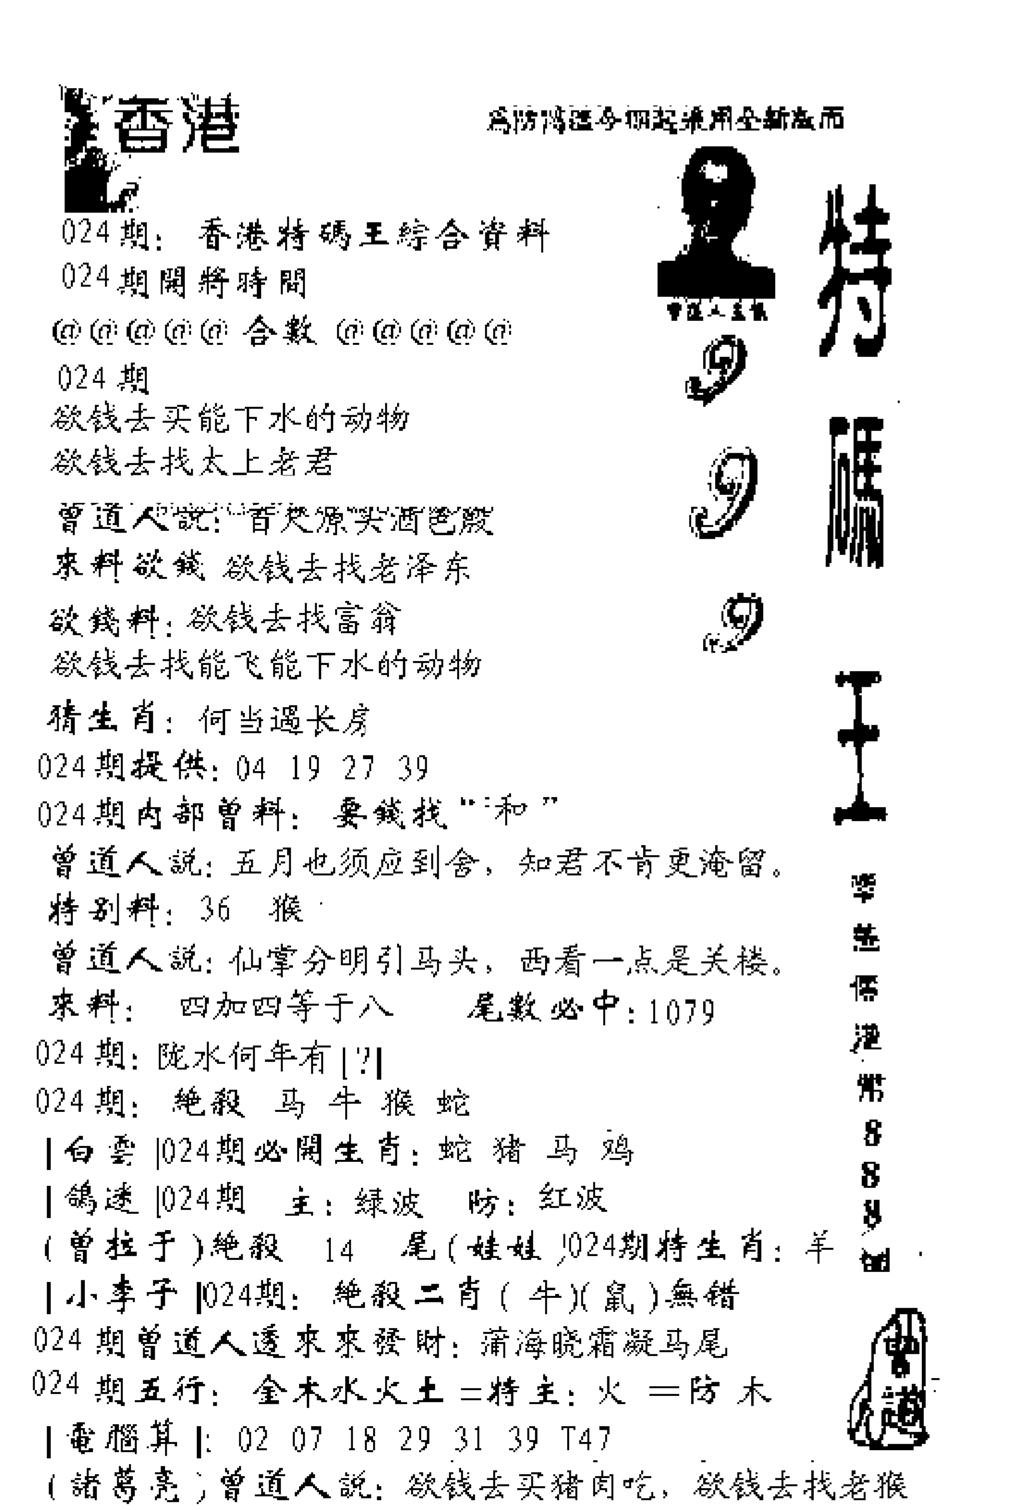 香港
024期：香港特碼王綜合資料
024期開將時間
@@@@@合數@@@@@
024期
欲钱去买能下水的动物
欲钱去找太上老君
曾道人説：百尺原头酒色殷
來料欲錢 欲钱去找老泽东
欲錢料：欲钱去找富翁
欲钱去找能飞能下水的动物
猜生肖：何当遇长房
024期提供：04 19 27 39
024期内部曾料：要錢找“和”
曾道人説：五月也须应到舍，知君不肯更淹留。
特别料：36 猴
曾道人説：仙掌分明引马头，西看一点是关楼。
來料：四加四等于八 尾數必中：1079
024期：陇水何年有|?|
024期：絶殺 马 牛 猴 蛇
|白雲|024期必開生肖：蛇 猪 马 鸡
|鴿迷|024期 主：绿波 防：红波
(曾拉于)絶殺 14 尾(娃娃)024期特生肖：羊
|小李子|024期：絶殺二肖(牛)(鼠)無错
024期曾道人透來來發財：蒲海晓霜凝马尾
024期五行：金木水火土=特主：火=防木
|電腦算|：02 07 18 29 31 39 T47
(諸葛亮)曾道人説：欲钱去买猪肉吃，欲钱去找老猴
特碼王
999
888
曾道